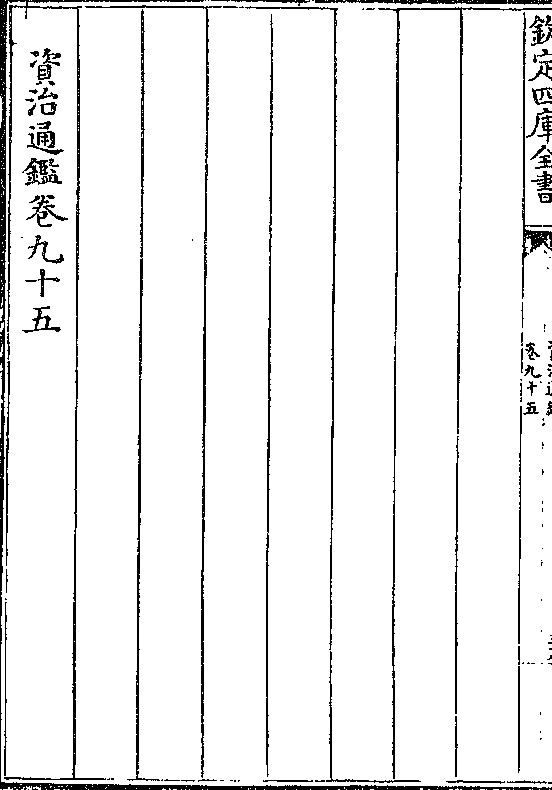 欽定四庫全書
資治通鑑
卷九十五
資治通鑑卷九十五